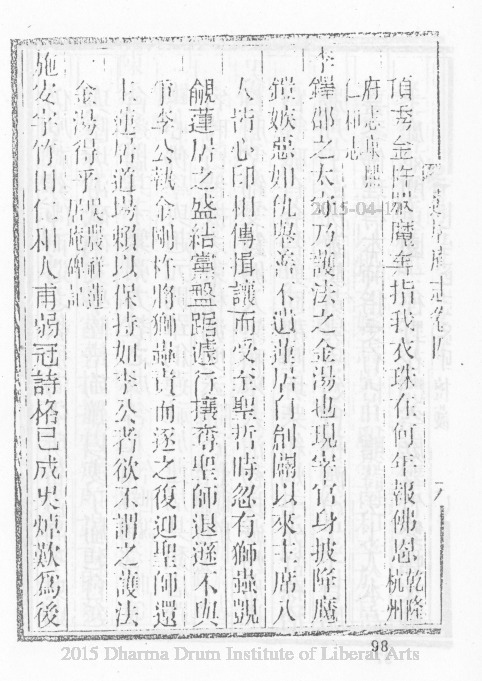 蓮居庵志卷四
頂秀金杵嚴魔奔指我衣珠在何年報佛恩乾隆杭州
府志康熙仁和志
李鐸郡之太守乃護法之金湯也現宰官身披降魔
鎧嫉惡如仇舉善不遺蓮居自創闢以來主席八
人皆心印相傳揖讓而受至聖哲時忽有獅蟲覬
覦蓮居之盛結黨盤踞遽行攘奪聖師退遜不與
爭李公執金剛杵將獅蟲責而逐之復迎聖師還
上蓮居道場賴以保持如李公者欲不謂之護法
金湯得乎吳農祥蓮居庵碑記
施安字竹田仁和人甫弱冠詩格已成吳焯歎爲後
98
2015 Dharma Drum Institute of Liberal Arts